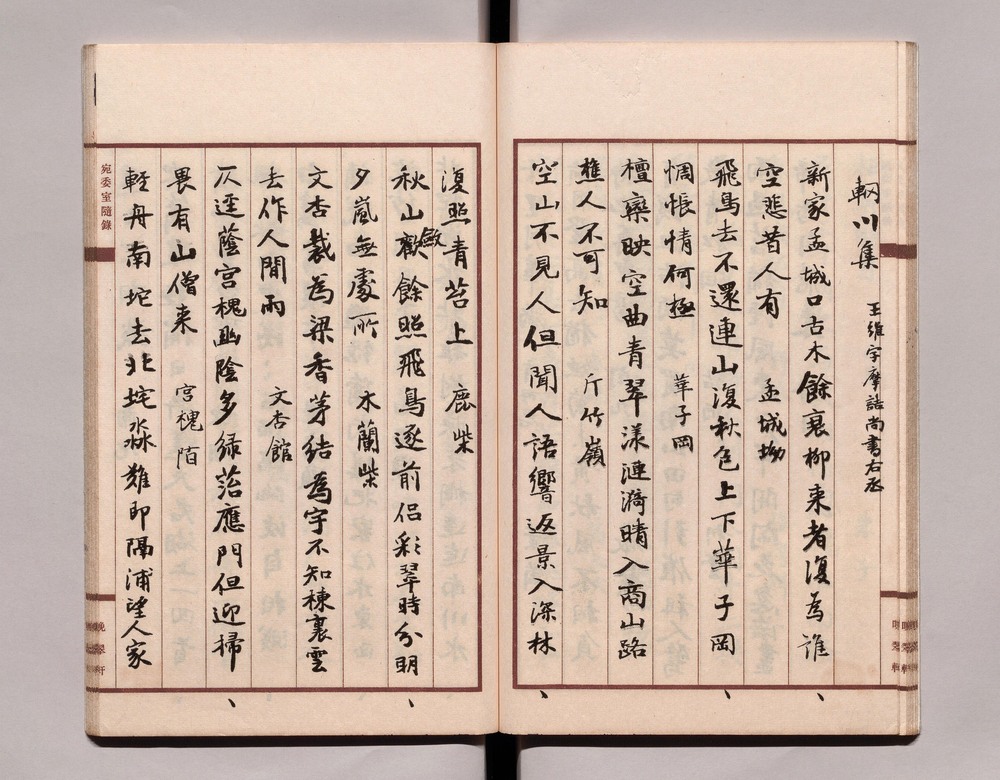 輞川集 王維字摩詰尚書右丞
新家孟城口古木餘衰柳来者復為誰
空悲昔人有 孟城坳
飛鳥去不還連山復秋色上下華子岡
惆悵情何極 華子岡
檀欒映空曲青翠漾漣漪暗入商山路
樵人不可知 斤竹嶺
空山不見人但聞人語響返景入深林
復照青苔上 鹿柴
秋山歛餘照飛鳥逐前侶彩翠時分明
夕嵐無處所 木蘭柴
文杏裁為梁香茅結為宇不知棟裏雲
去作人間雨 文杏館
仄逕蔭宮槐幽陰多緑苔應門但迎掃
畏有山僧来 宮槐陌
輕舟南垞去北垞淼難即隔浦望人家
宛委室隨錄
晩翠軒